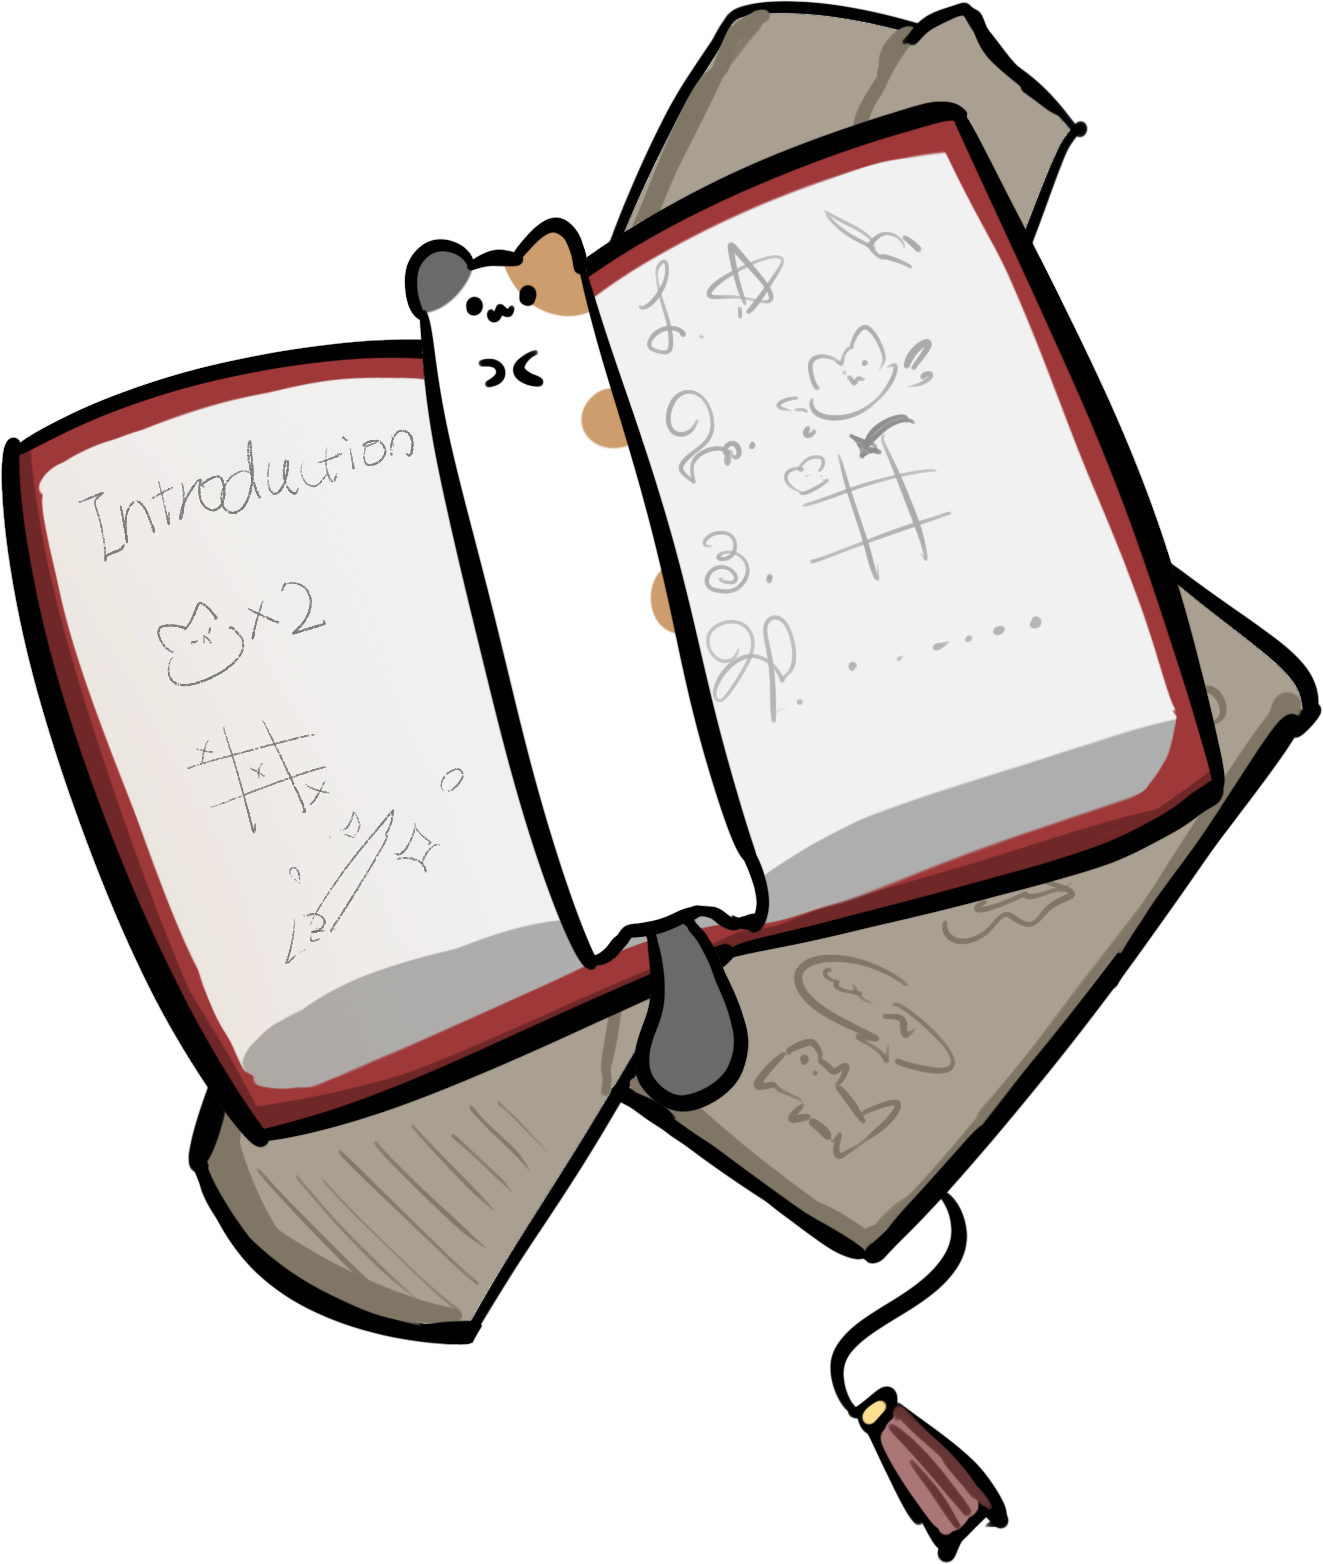 Introduction
×2
1.
2.
3.
4. ......